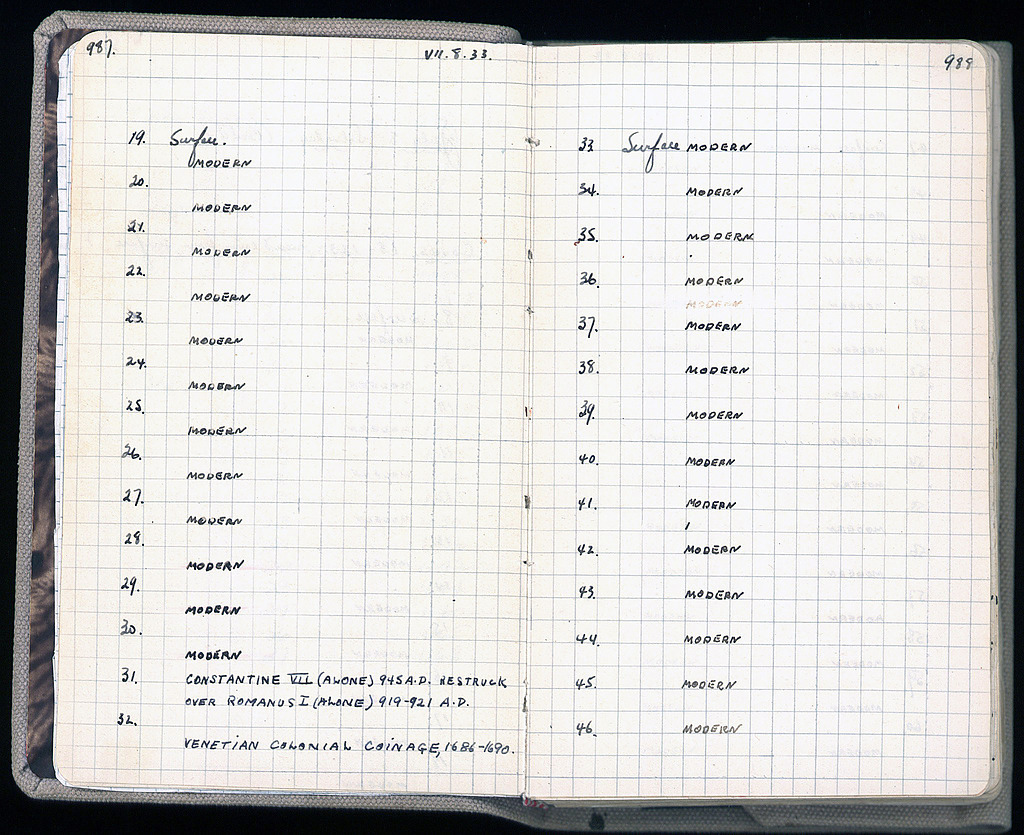 987.
VII.8.33.
19. Surface.
MODERN
20.
MODERN
21.
MODERN
22.
MODERN
23.
MODERN
24.
MODERN
25.
MODERN
26.
MODERN
27.
MODERN
28.
MODERN
29.
MODERN
30.
MODERN
31. CONSTANTINE VII (ALONE) 945 A.D. RESTRUCK
OVER ROMANUS I (ALONE) 919-921 A.D.
32.
VENETIAN COLONIAL COINAGE, 1686-1690.
988
33. Surface MODERN
34. MODERN
35. MODERN
36. MODERN
MODERN
37. MODERN
38. MODERN
39. MODERN
40. MODERN
41. MODERN
42. MODERN
43. MODERN
44. MODERN
45. MODERN
46. MODERN